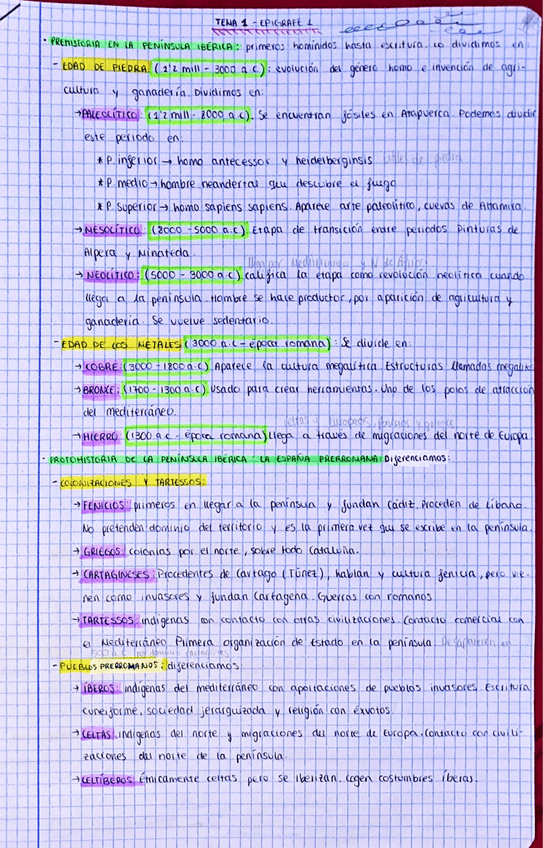 TEMA 1 - EPIGRAFE 1
· PREHISTORIA EN LA PENÍNSULA IBÉRICA: primeros homínidos hasta escritura. Lo dividimos en
- EDAD DE PIEDRA (1'2 mill - 3000 a.c): evolución del género homo e invención de agri-
cultura y ganadería. Dividimos en:
→ PALEOLÍTICO: (1'2 mill - 8000 a.c). Se encuentran fósiles en Atapuerca. Podemos dividir
este periodo en:
* P. inferior → homo antecessor y heidelberginsis útiles de piedra
* P. medio → hombre neandertal que descubre el fuego
* P. superior → homo sapiens sapiens. Aparece arte paleolítico, cuevas de Altamira.
→ MESOLÍTICO: (8000 - 5000 a.c) Etapa de transición entre periodos. Pinturas de
Alpera y Minateda.
llega por Mediterráneo y N de África
→ NEOLÍTICO: (5000 - 3000 a.c) califica la etapa como revolución neolítica cuando
llega a la península. Hombre se hace productor, por aparición de agricultura y
ganadería. Se vuelve sedentario.
- EDAD DE LOS METALES (3000 a.c - época romana): Se divide en:
→ COBRE: (3000 - 1800 a.c) Aparece la cultura megalítica. Estructuras llamadas megalito
→ BRONCE: (1700 - 1300 a.c) Usado para crear herramientas. Uno de los polos de atracción
del mediterráneo.
celtas y europeos, fenicios y griegos
→ HIERRO: (1300 a.c - época romana) Llega a través de migraciones del norte de Europa
· PROTOHISTORIA DE LA PENÍNSULA IBÉRICA: LA ESPAÑA PRERROMANA: Diferenciamos:
- COLONIZACIONES Y TARTESSOS:
→ FENICIOS: primeros en llegar a la península y fundan Cádiz. Proceden de Líbano.
No pretenden dominio del territorio y es la primera vez que se escribe en la península.
→ GRIEGOS: colonias por el norte, sobre todo Cataluña.
→ CARTAGINESES: Procedentes de Cartago (Túnez), hablan y cultura fenicia, pero vie-
nen como invasores y fundan Cartagena. Guerras con romanos.
→ TARTESSOS: indígenas con contacto con otras civilitaciones. Contacto comercial con
el Mediterráneo. Primera organización de Estado en la península. Desaparecen en
500 a.c
- PUEBLOS PRERROMANOS: diferenciamos
→ ÍBEROS: indígenas del mediterráneo con aportaciones de pueblos invasores. Escritura
cuneiforme, sociedad jerarquizada y religión con exvotos.
→ CELTAS: indígenas del norte y migraciones del norte de Europa. Contacto con civili-
zaciones del norte de la península.
→ CELTÍBEROS: Étnicamente celtas pero se iberizan. Cogen costumbres íberas.